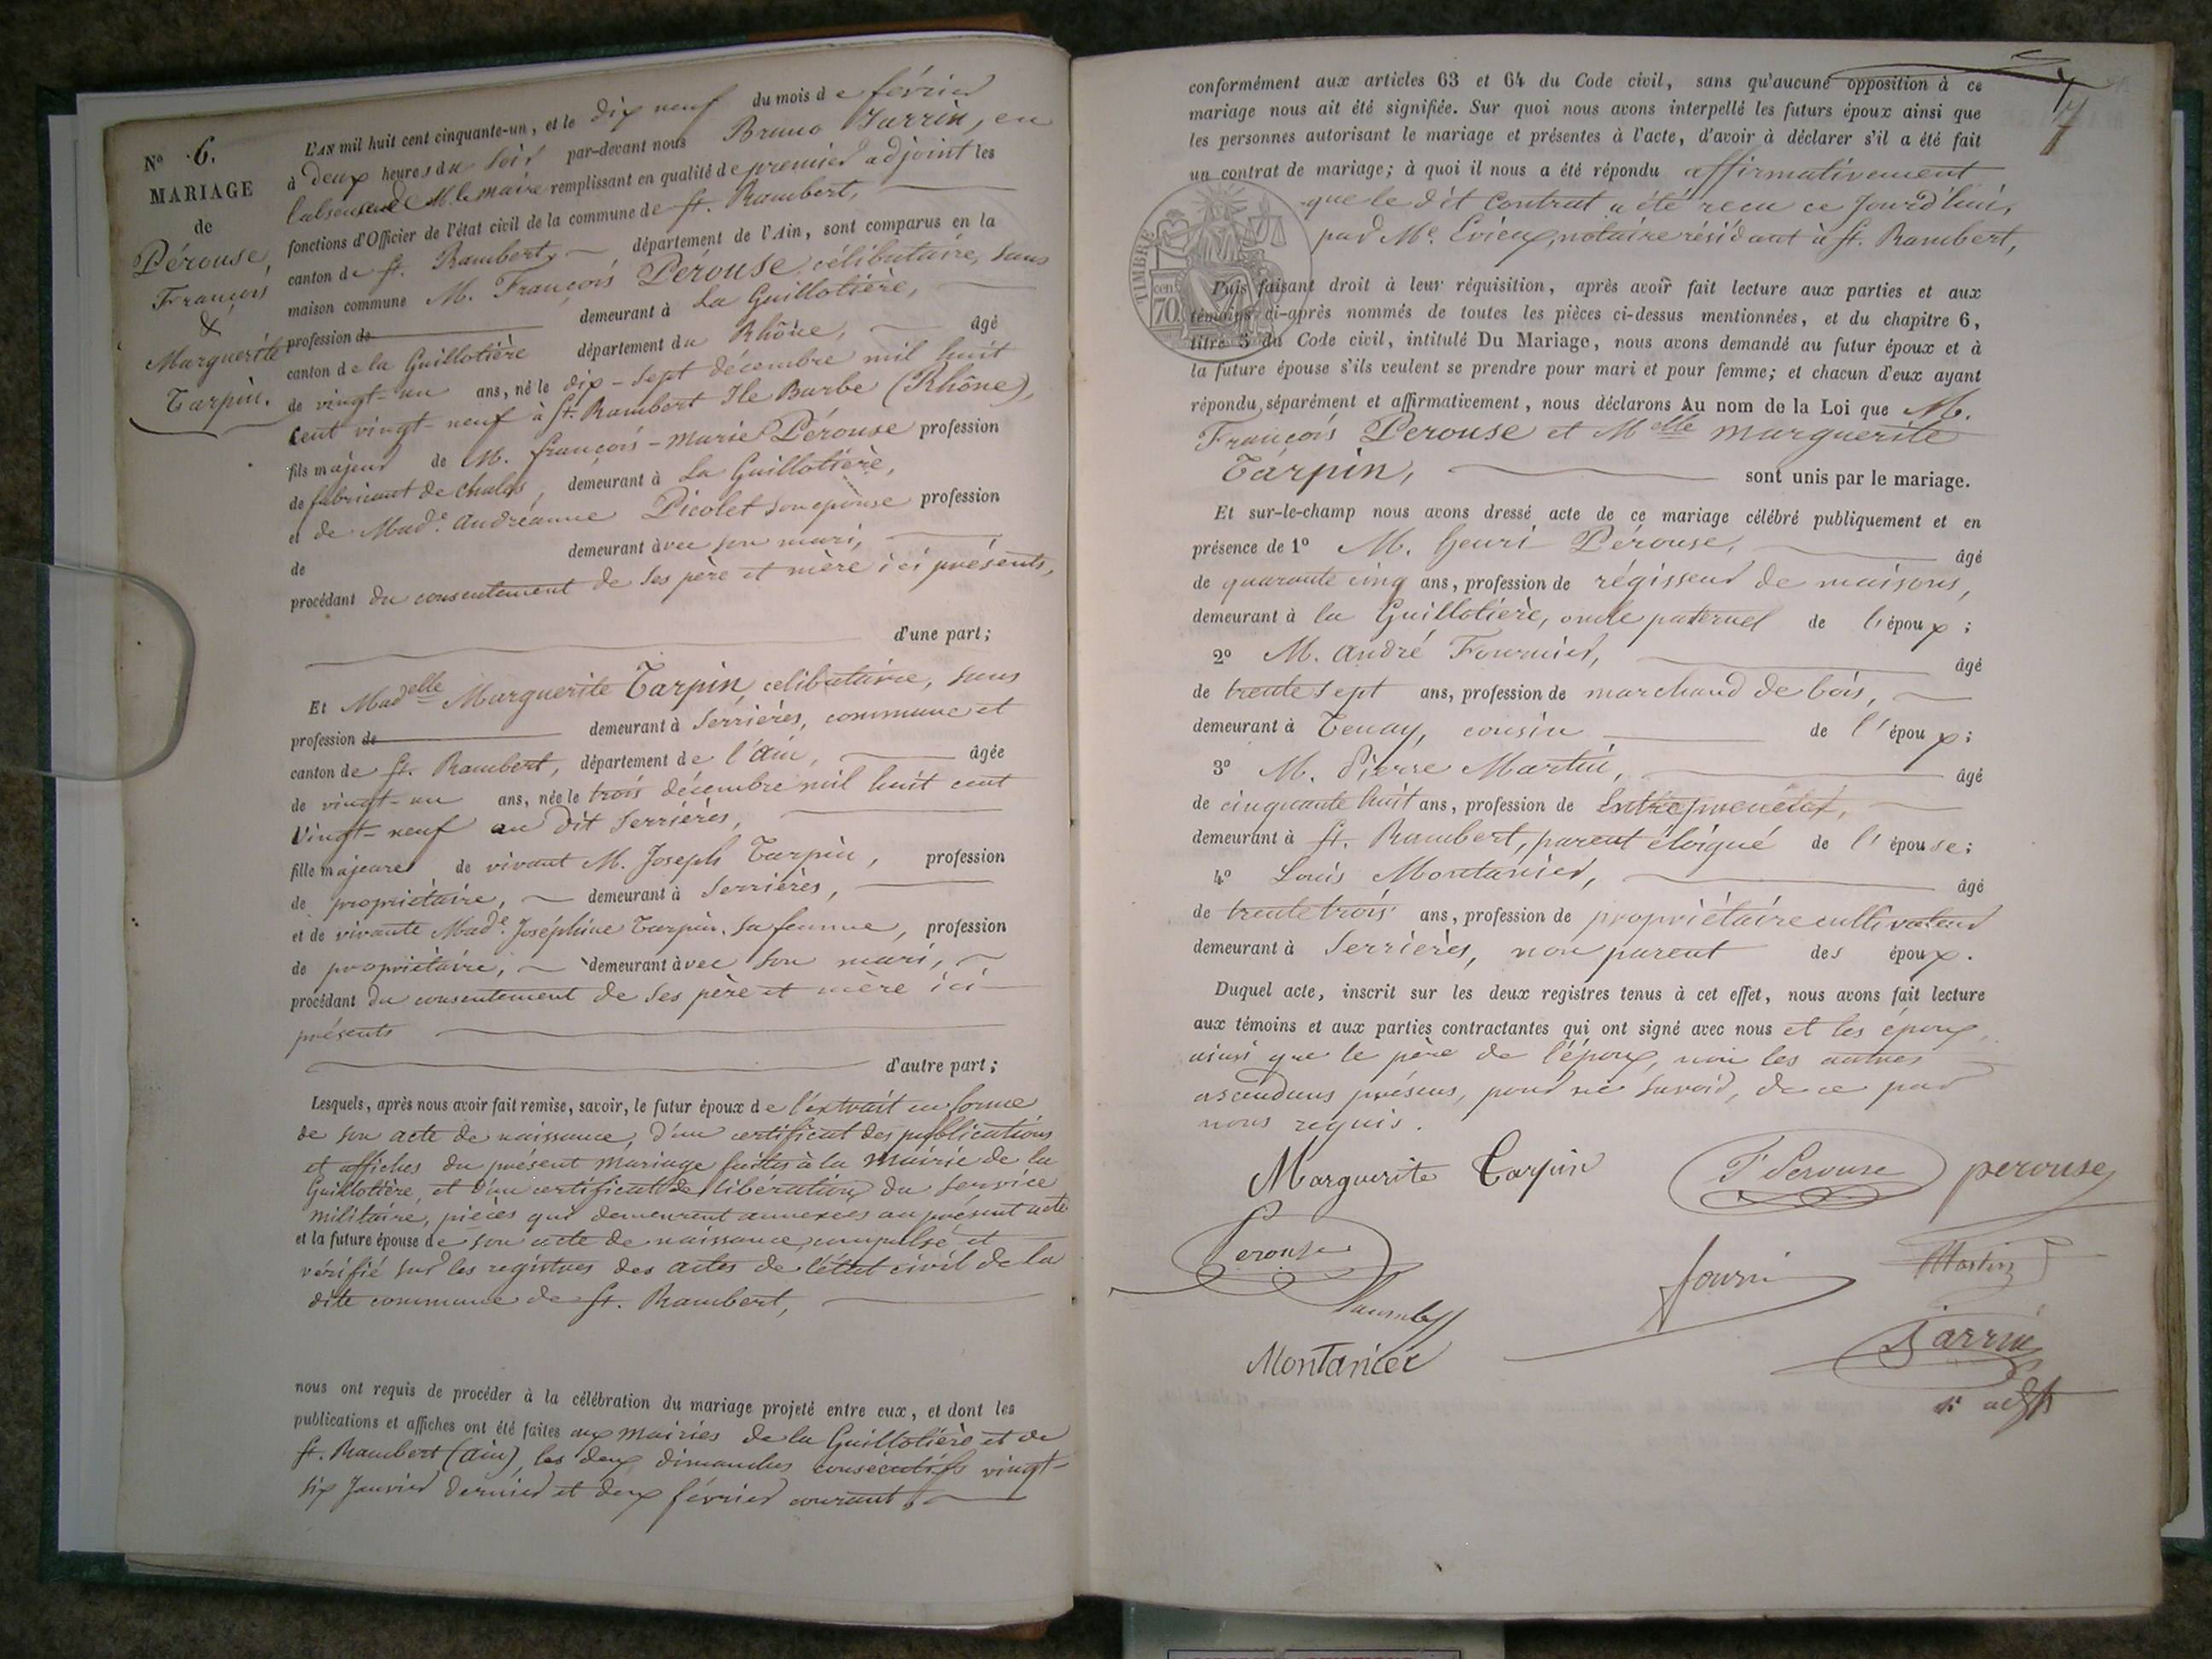 N° 6.
MARIAGE
de
Pérouse,
François
&
Marguerite
Tarpin.
L'AN mil huit cent cinquante-un, et le dix neuf du mois de février
à deux heures du soir par-devant nous Bruno Jarrin, en
l'absence de M. le maire remplissant en qualité de premier adjoint les
fonctions d'Officier de l'état civil de la commune de St. Rambert,
canton de St. Rambert, département de l'Ain, sont comparus en la
maison commune M. François Pérouse célibataire, sans
profession de demeurant à La Guillotière,
canton de la Guillotière département du Rhône, âgé
de vingt-un ans, né le dix-sept décembre mil huit
cent vingt-neuf à St. Rambert Ile Barbe (Rhône),
fils majeur de M. françois-marie Pérouse profession
de fabricant de chales, demeurant à La Guillotière,
et de Made. andréanne Picolet son épouse profession
de demeurant avec son mari,
procédant du consentement de ses père et mère ici présents,
d'une part;
Et Madelle Marguerite Tarpin célibataire, sans
profession de demeurant à Serrières, commune et
canton de St. Rambert, département de l'ain, âgée
de vingt-un ans, née le trois décembre mil huit cent
vingt-neuf au dit Serrières,
fille majeure de vivant M. Joseph Tarpin, profession
de propriétaire, demeurant à Serrières,
et de vivante Made. Joséphine Tarpin, sa femme, profession
de propriétaire, demeurant avec son mari,
procédant du consentement de ses père et mère ici
présents
d'autre part;
Lesquels, après nous avoir fait remise, savoir, le futur époux de l'extrait en forme
de son acte de naissance, d'un certificat des publications
et affiches du présent mariage faites à la mairie de la
Guillotière, et d'un certificat de libération du service
militaire, pièces qui demeurent annexées au présent acte
et la future épouse de son acte de naissance compulsé et
vérifié sur les registres des actes de l'état civil de la
dite commune de St. Rambert,
nous ont requis de procéder à la célébration du mariage projeté entre eux, et dont les
publications et affiches ont été faites aux mairies de la Guillotière et de
St. Rambert (ain), les deux dimanches consécutifs vingt-
six Janvier dernier et deux février courant,
7
conformément aux articles 63 et 64 du Code civil, sans qu'aucune opposition à ce
mariage nous ait été signifiée. Sur quoi nous avons interpellé les futurs époux ainsi que
les personnes autorisant le mariage et présentes à l'acte, d'avoir à déclarer s'il a été fait
un contrat de mariage; à quoi il nous a été répondu affirmativement
que le dit Contrat a été recu ce Jourd'hui,
par Me. Evieux, notaire résidant à St. Rambert,
TIMBRE
cen.
70.
Puis faisant droit à leur réquisition, après avoir fait lecture aux parties et aux
témoins ci-après nommés de toutes les pièces ci-dessus mentionnées, et du chapitre 6,
titre 5 du Code civil, intitulé Du Mariage, nous avons demandé au futur époux et à
la future épouse s'ils veulent se prendre pour mari et pour femme; et chacun d'eux ayant
répondu, séparément et affirmativement, nous déclarons Au nom de la Loi que M.
François Perouse et Melle marguerite
Tarpin, sont unis par le mariage.
Et sur-le-champ nous avons dressé acte de ce mariage célébré publiquement et en
présence de 1° M. henri Pérouse, âgé
de quarante cinq ans, profession de régisseur de maisons,
demeurant à la Guillotière, oncle paternel de l'époux;
2° M. andré Fournier, âgé
de trente sept ans, profession de marchand de bois,
demeurant à Tenay, cousin de l'époux;
3° M. Pierre Martin, âgé
de cinquante huit ans, profession de
demeurant à St. Rambert, parent éloigné de l'épouse;
4° Louis Montanier, âgé
de trente trois ans, profession de propriétaire cultivateur
demeurant à Serrières, non parent des époux.
Duquel acte, inscrit sur les deux registres tenus à cet effet, nous avons fait lecture
aux témoins et aux parties contractantes qui ont signé avec nous et les époux,
ainsi que le père de l'époux, non les autres
ascendans présens, pour ne savoir, de ce par
nous requis.
Marguerite Tarpin F Perouse perouse
Perouse
fourni Martin
Montanier
Jarrin
1er adjt